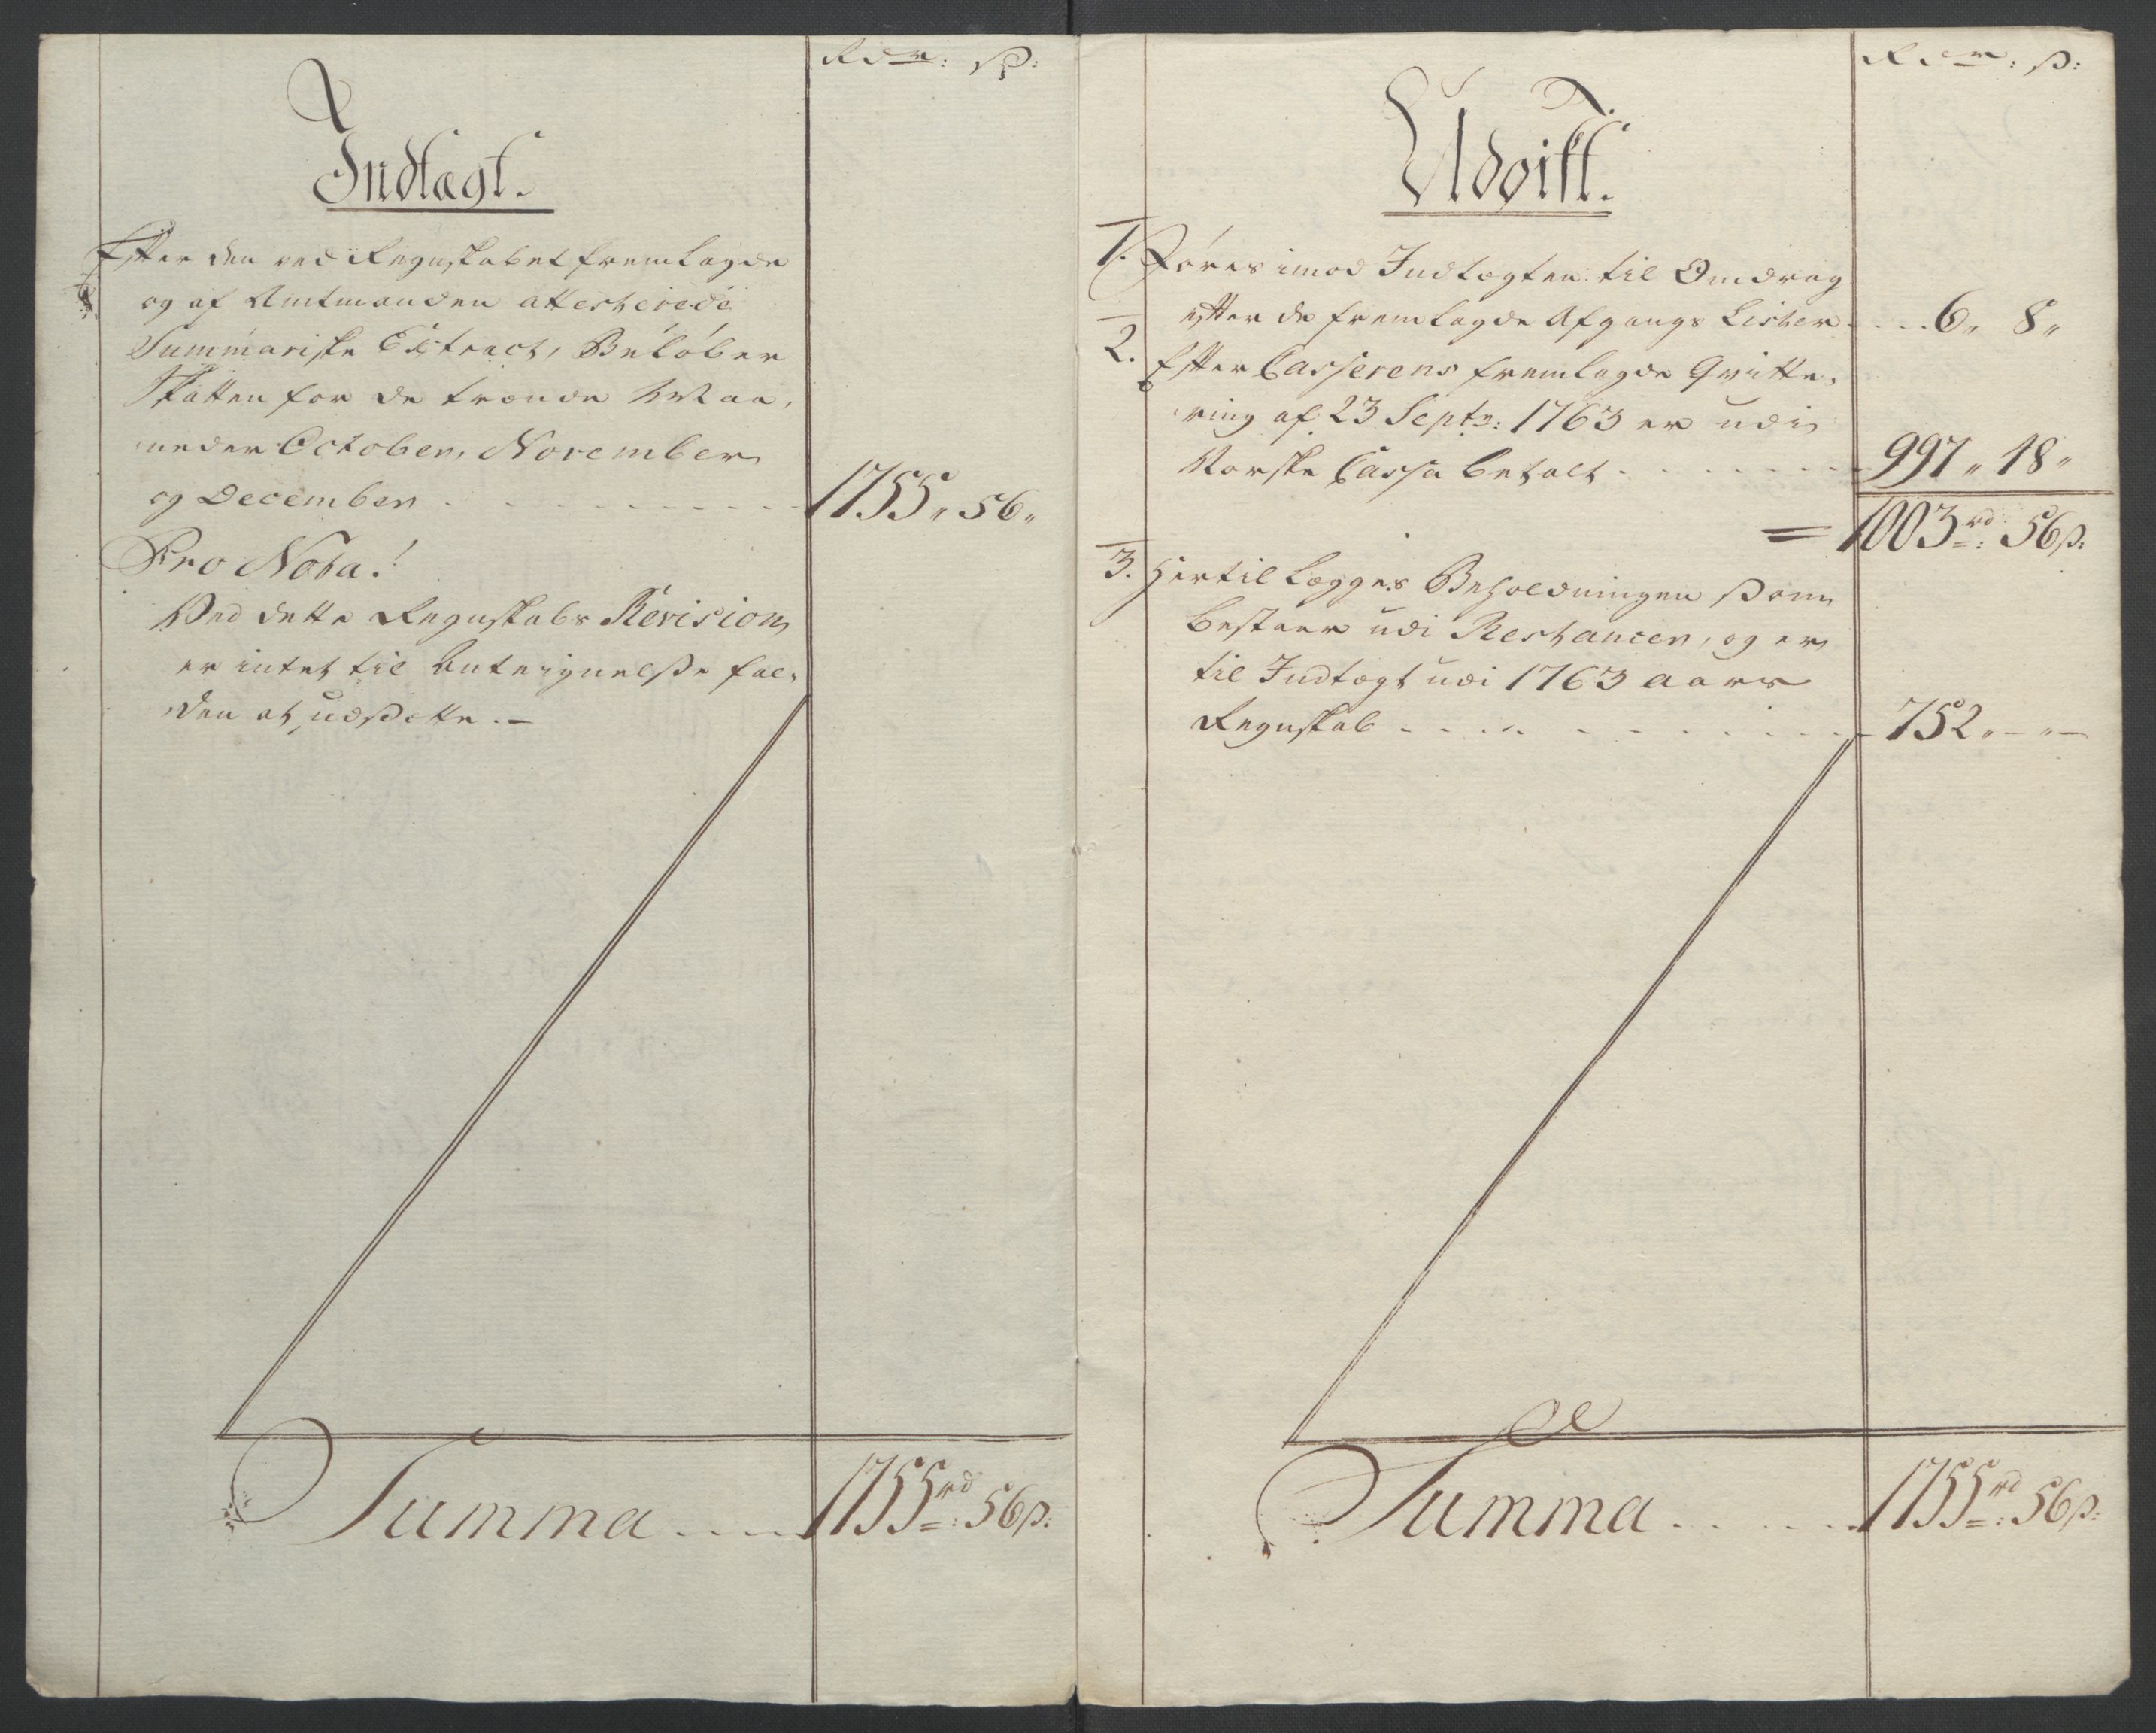 Rdr: ß:
Indtægt.
Efter den ved Regnskabet fremlagde
og af Amtmanden attesterede
Summariske Extract, Beløber
Skatten for de trende Maa,
neder October, November
og December . . . . . . . . . 1755 „ 56 „
Pro Nota!
Ved dette Regnskabs Revision
er intet til Anteignelße fal,
den at udßette. —
Summa . . . . 1755 rd: 56 ß:
Rdr: ß:
Udgift.
1. Føres imod Indtægten til Omdrag
efter de fremlagde Afgangs Lister . . . . 6 „ 8 „
2. Efter Casserens fremlagde Qvitte,
ring af 23 Septr: 1763 er udi
Norske Cassa betalt . . . . . . . . 997 „ 48 „
= 1003 rd: 56 ß:
3. Hertil Legges Beholdningen ßom
bestaar udi Restancer, og er
til Indtægt udi 1763 aars
Regnskab . . . . . . . . . . 752 „ — „ —
Summa . . . . . . 1755 rd: 56 ß: